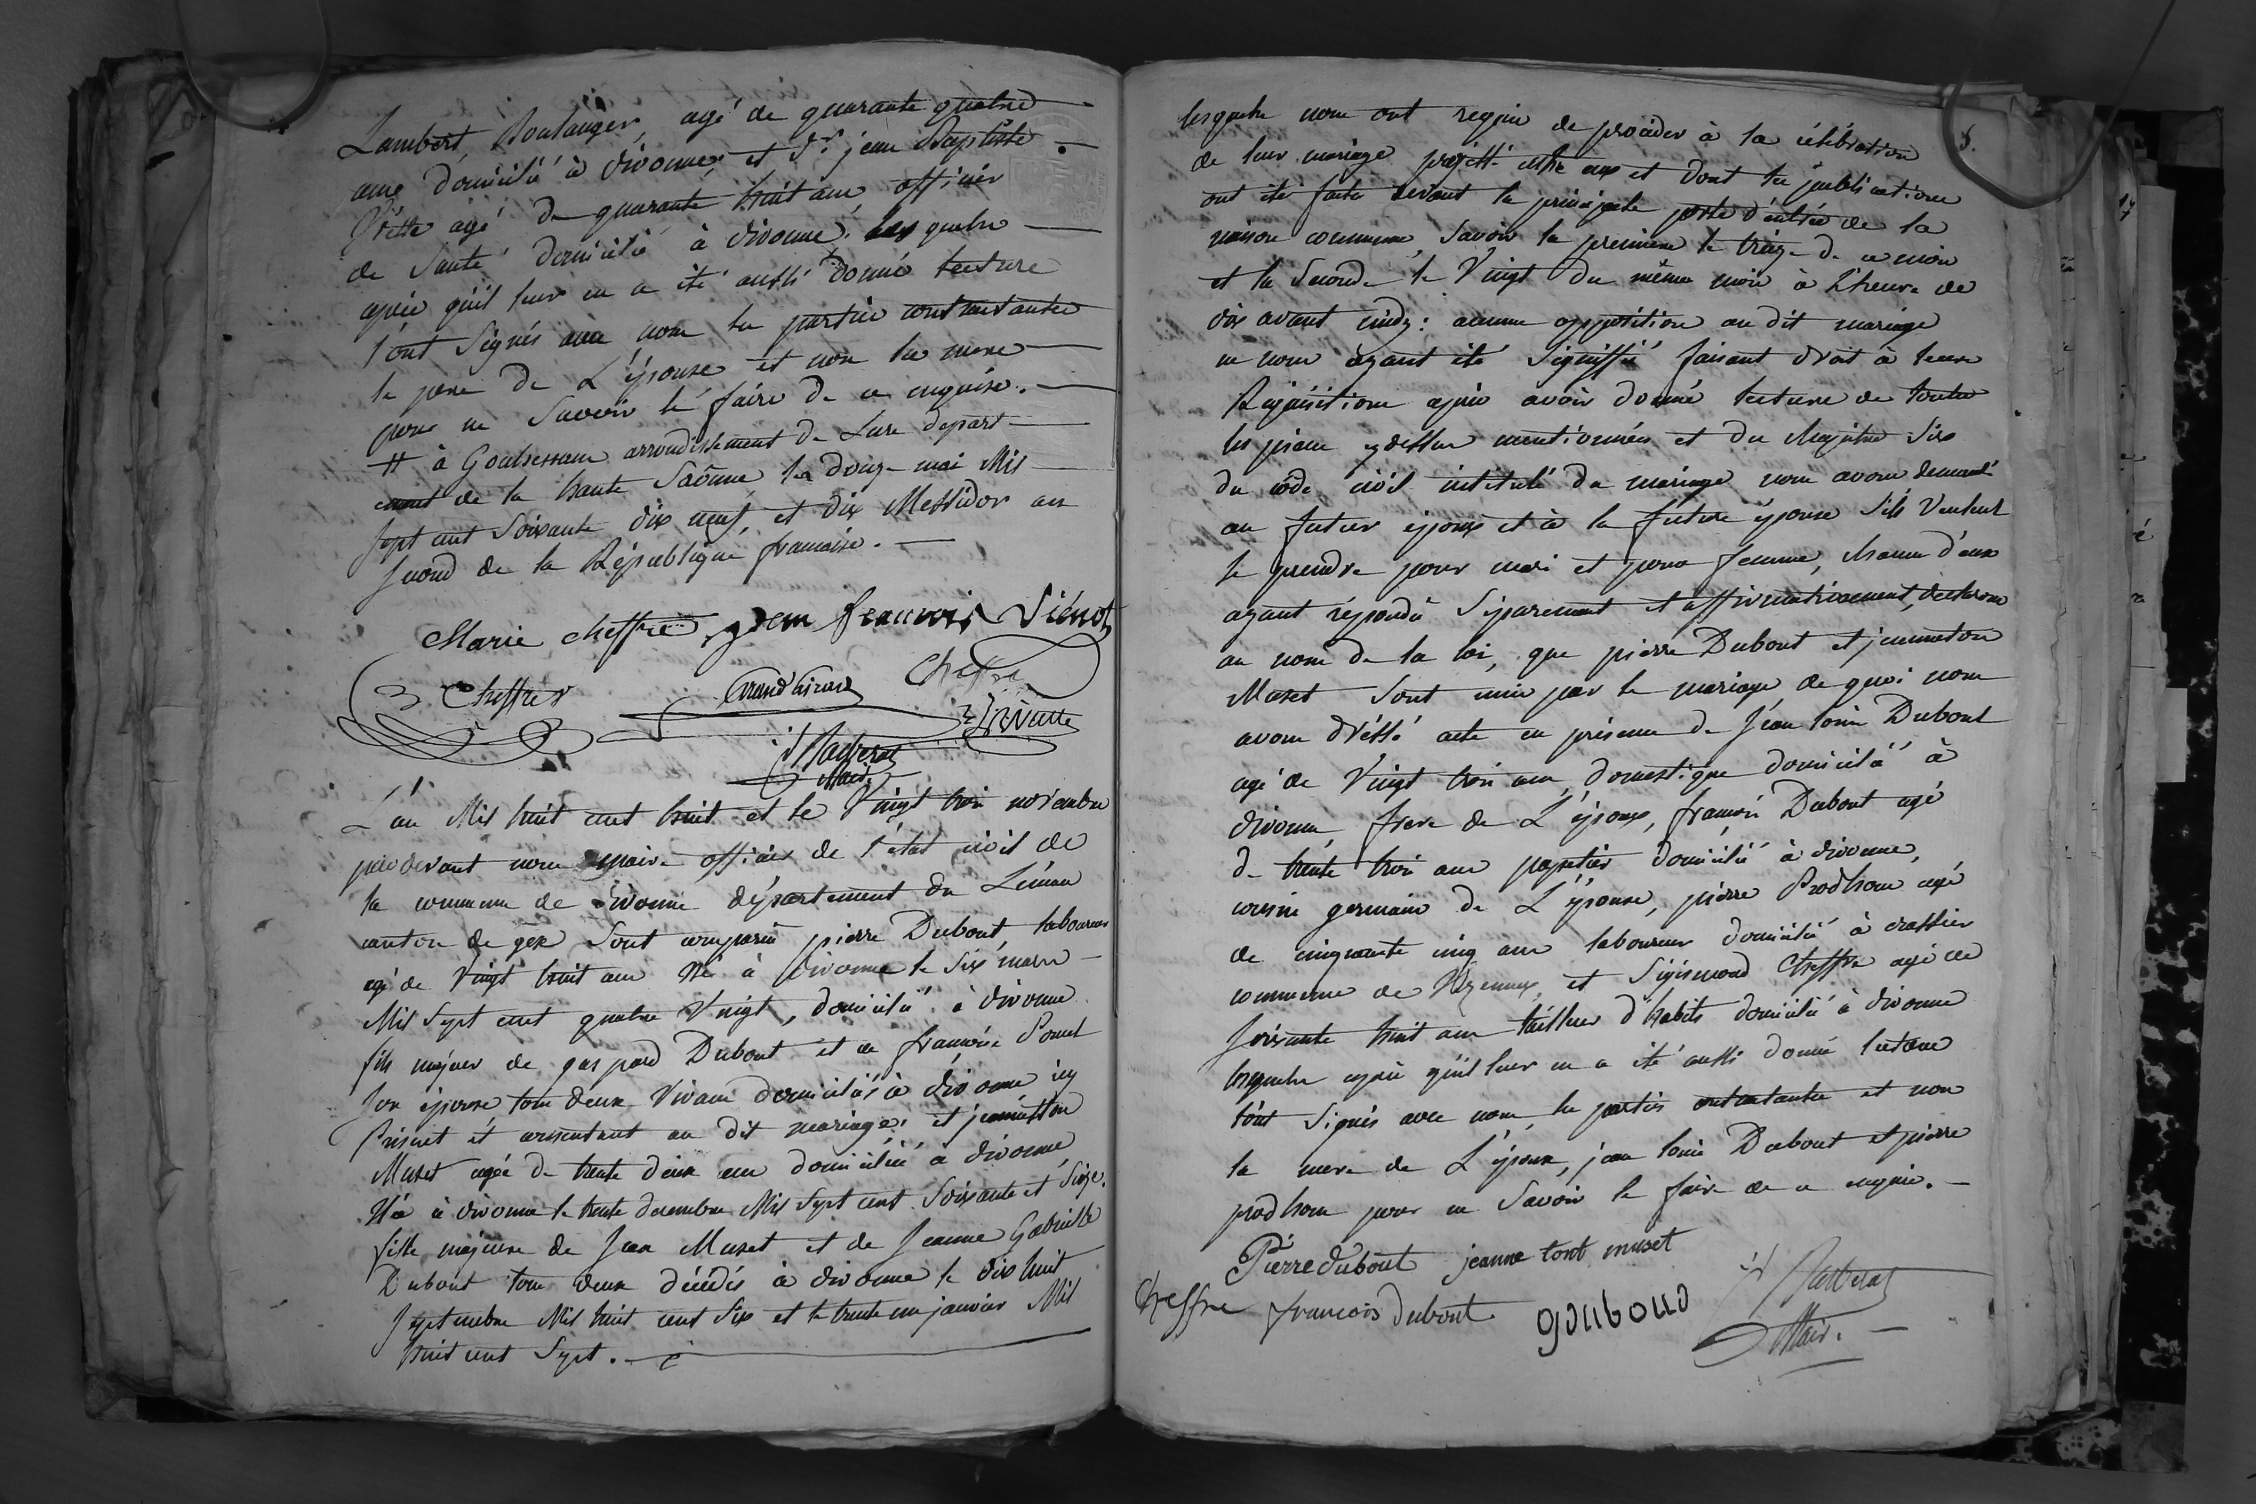 Lambert, Boulanger, agé de quarante quatre
ans domicilié à divonne, et Sr. jean Baptiste
agé de quarante huit ans, officier
de Santé domicilié à divonne, lesquels
après qu'il leur en a été aussi donné lecture
l'ont Signés avec nous les parties contractantes
le pere de L'épouse et non la mere
pour ne Savoir le faire de ce enquise.
# à arrondissement de Lure depart-
ement de la haute Saône, le douze mai Mil
Sept cent Soixante dix neuf, et dix Messidor an
Second de la République francaise.
Marie cheffre jean francois Viénot
Cheffre Grand Girard Cheffre
Maire
L'an Mil huit cent huit et le Vingt trois novembre
pardevant nous maire officier de l'état civil de
la commune de divonne département du Léman
canton de gex Sont comparus pierre Dubout laboureur
agé de Vingt huit ans Né à divonne le Six mars
Mil Sept cent quatre Vingt, domicilié à divonne
fils majeur de gaspard Dubout et de francoise Ponet
Son épouse, tous deux Vivans domiciliés à divonne icy
Présent et consentant au dit mariage; et jeannetton
Muset agée de trente deux ans domiciliée à divonne
Née à divonne le trente decembre Mil Sept cent Soixante et Seize.
fille majeure de Jean Muset et de Jeanne Gabrielle
Dubout tous deux décédés à divonne le dix huit
Septembre Mil huit cent Six et le trente un janvier Mil
huit cent Sept.
5.
lesquels nous ont requis de proceder à la célébration
de leur mariage projetté entre eux et dont les publications
ont été faites devant la principale porte d'entrée de la
maison commune, Savoir la premiere le treize de ce mois
et la Seconde le Vingt du même mois à l'heure de
dix avant midy: aucune opposition au dit mariage
ne nous ayant été Signiffiée faisant droit à leur
Requisitions après avoir donné lecture de toutes
les pieces ydessus mentionnées et du chapitre Six
du côde civil intitulé du mariage nous avons demandé
au futur époux et à la future épouse S'ils Veulent
se prendre pour mari et pour femme, chacun d'eux
ayant répondu Séparement et affirmativement, declarons
au nom de la loi, que pierre Dubout et jeanneton
Muset Sont unis par le mariage, de quoi nous
avons dréssé acte en présence de Jean louis Dubout
agé de Vingt trois ans, domestique domicilié à
divonne frere de L'époux, francois Dubout agé
de trente trois ans papetier domicilié à divonne,
cousin germain de L'épouse, pierre Prodhom agé
de cinquante cinq ans laboureur domicilié à crassier
commune de Vezennex, et Sigismond Cheffre agé de
Soixante huit ans tailleur d'habits domicilié à divonne
lesquels après qu'il leur en a été aussi donné lecture
l'ont Signés avec nous, les parties contractantes et non
la mere de L'époux, jean louis Dubout et pierre
prodhom pour ne Savoir le faire de ce enquis.
Pierre dubout jeanne tont muset
Cheffre francois dubout
Maire.